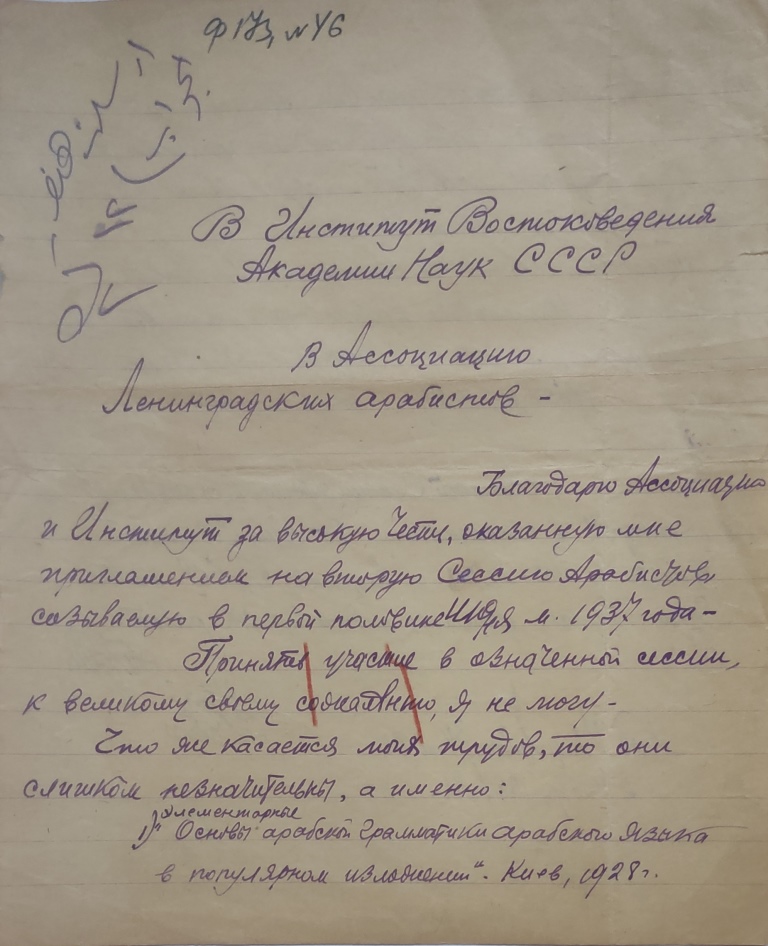 Ф 173, № 46
В Институт Востоковедения
Академии Наук СССР
В Ассоциацию
Ленинградских арабистов -
Благодарю Ассоциацию
и Институт за высокую честь, оказанную мне
приглашением на вторую Сессию Арабистов,
созываемую в первой половине июня м. 1937 года -
Принять участие в означенной сессии,
к великому своему сожалению, я не могу -
Что же касается моих трудов, то они
слишком незначительны, а именно:
элементарные
1) "Основы арабской грамматики арабского языка
в популярном изложении". Киев, 1928 г.